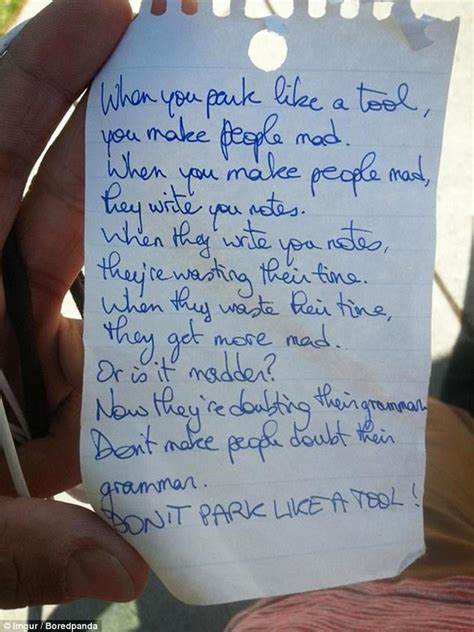 When you park like a tool,
you make people mad.
When you make people mad,
they write you notes.
When they write you notes,
they're wasting their time.
When they waste their time,
they get more mad.
Or is it madder?
Now they're doubting their grammar
Don't make people doubt their
grammar.
DON'T PARK LIKE A TOOL!
© Imgur / Boredpanda